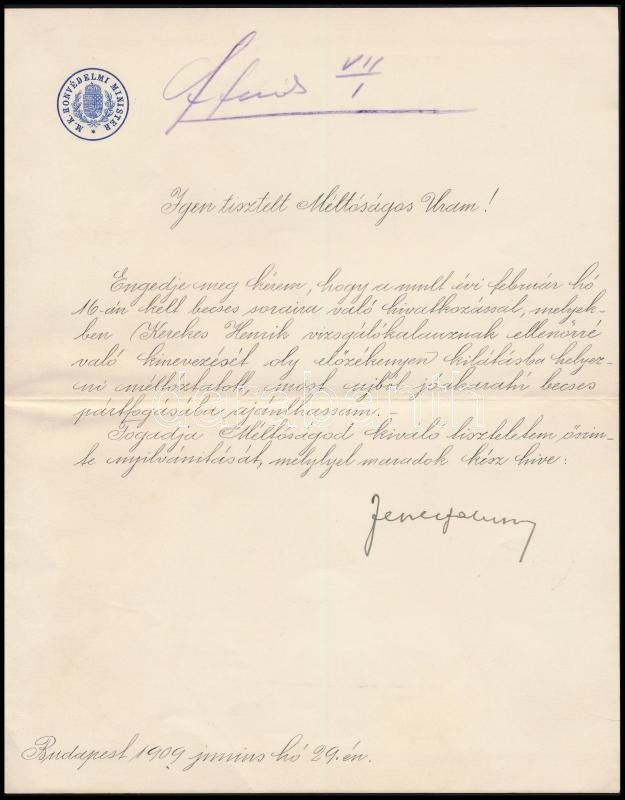 M. K. HONVÉDELMI MINISTER
VII
I
Igen tisztelt Méltóságos Uram!
Engedje meg kérem, hogy a mult évi február hó
16-án kelt becses soraira való hivatkozással, melyek-
ben Kerekes Henrik vizsgálókalauznak ellenőrré
való kinevezését oly előzékenyen kilátásba helyez-
ni méltóztatott, most ujból jóakaratú becses
pártfogásába ajánlhassam. –
Fogadja Méltóságod kiváló tiszteletem őszin-
te nyilvánitását, melylyel maradok kész hive:
Budapest, 1909 junius hó 29-én.
darabanth